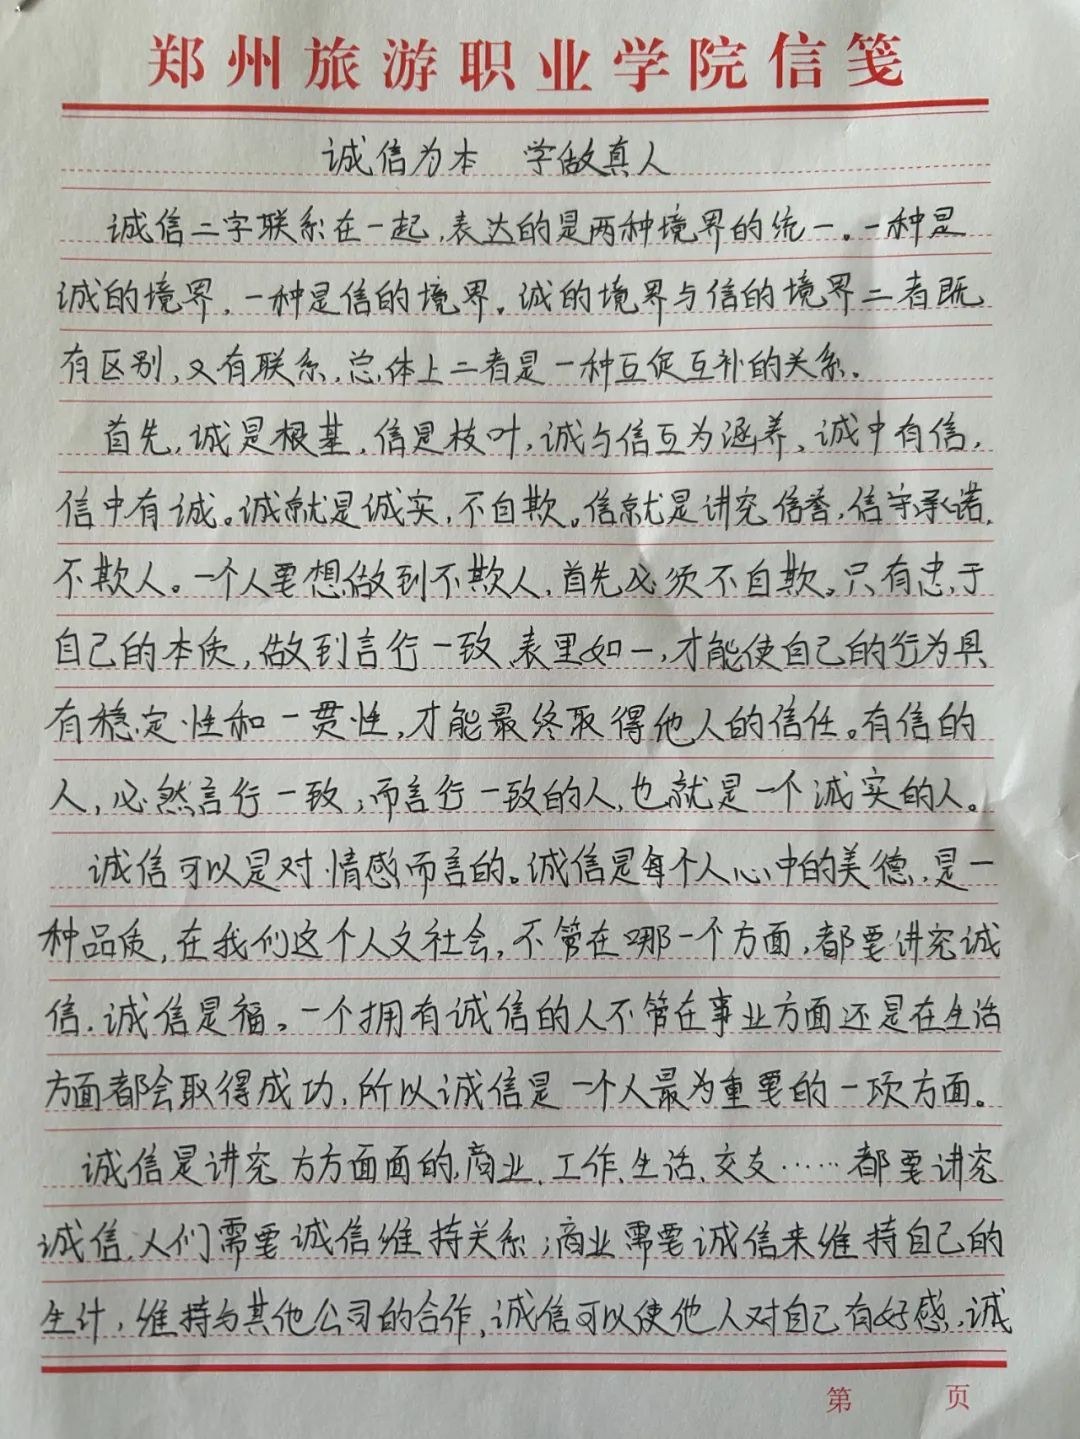 郑州旅游职业学院信笺
诚信为本 学做真人
诚信二字联系在一起,表达的是两种境界的统一。一种是
诚的境界,一种是信的境界。诚的境界与信的境界二者既
有区别,又有联系,总体上二者是一种互促互补的关系。
首先,诚是根基,信是枝叶,诚与信互为涵养,诚中有信,
信中有诚。诚就是诚实,不自欺。信就是讲究信誉,信守承诺,
不欺人。一个人要想做到不欺人,首先必须不自欺。只有忠于
自己的本质,做到言行一致、表里如一,才能使自己的行为具
有稳定性和一贯性,才能最终取得他人的信任。有信的
人,必然言行一致;而言行一致的人,也就是一个诚实的人。
诚信可以是对情感而言的。诚信是每个人心中的美德,是一
种品质,在我们这个人文社会,不管在哪一个方面,都要讲究诚
信,诚信是福。一个拥有诚信的人不管在事业方面还是在生活
方面都会取得成功,所以诚信是一个人最为重要的一项方面。
诚信是讲究方方面面的,商业、工作、生活、交友……都要讲究
诚信,人们需要诚信维持关系;商业需要诚信来维持自己的
生计,维持与其他公司的合作,诚信可以使他人对自己有好感,诚
第 页